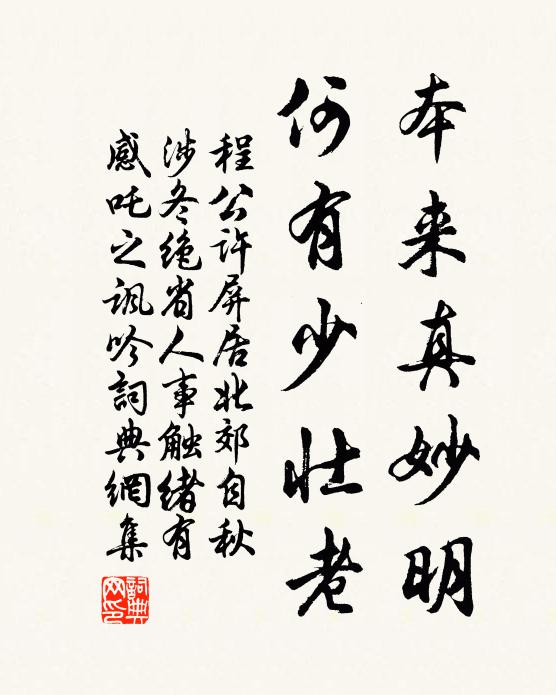 本来真妙明
何有少壮老
程公许屏居北郊自秋
涉冬绝省人事触绪有
感吒之讽吟詞典網集
詞典網印